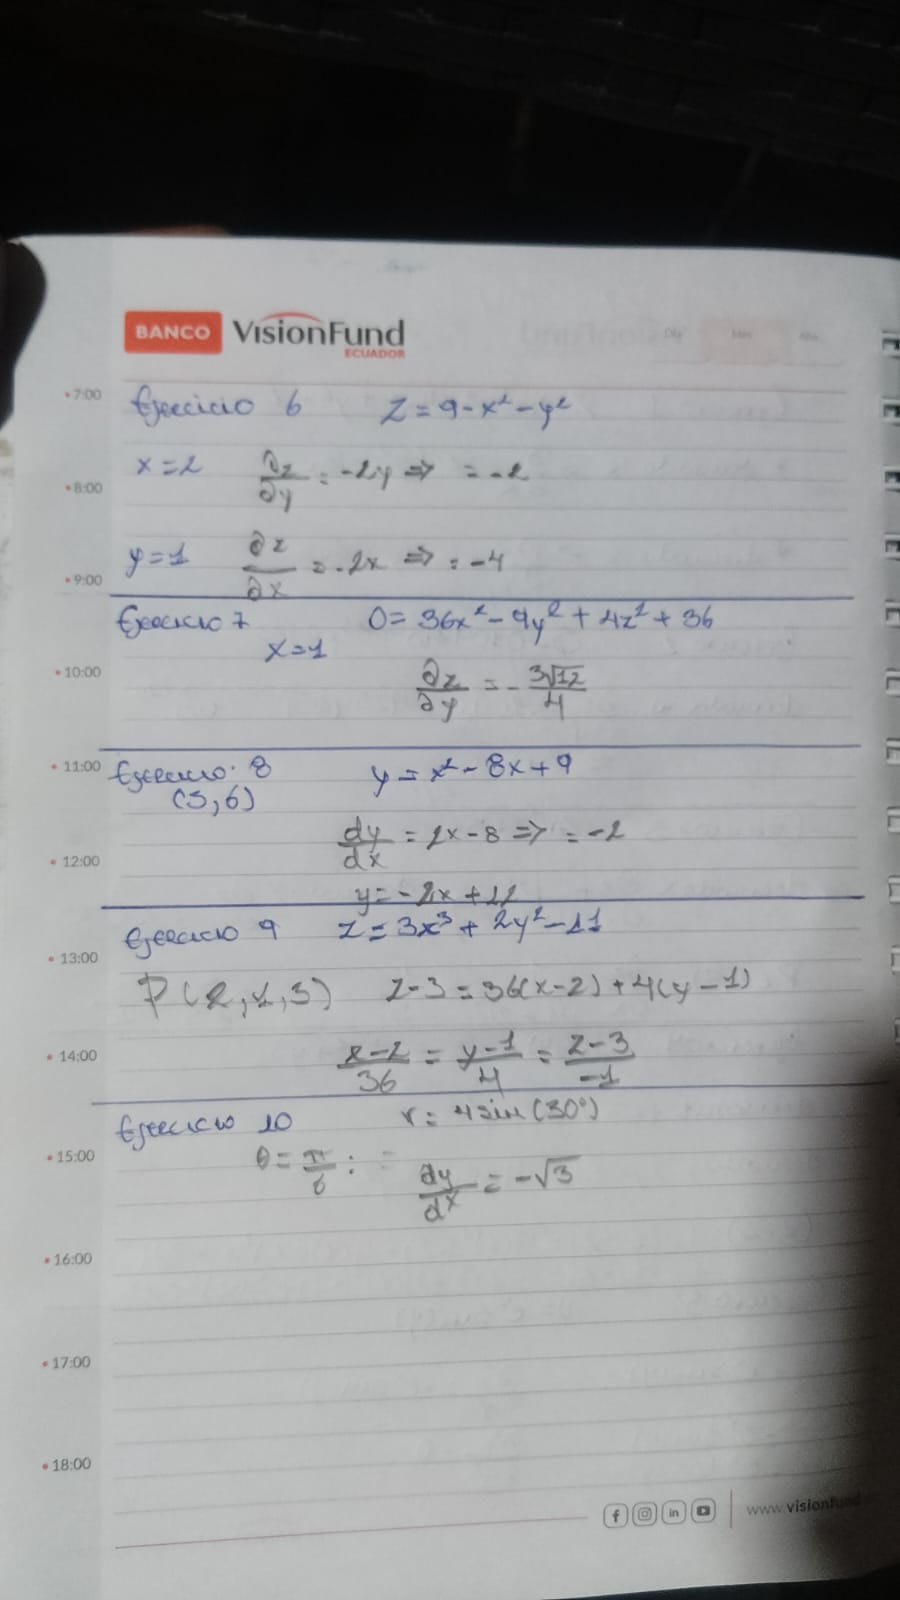 BANCO VISIONFUND
ECUADOR
7:00 Ejercicio 6 Z = 9 - x² - y²
x = 2 ∂z/∂y = -2y ⇒ = -2
8:00
y = 1 ∂z/∂x = -2x ⇒ = -4
9:00
Ejercicio 7 0 = 36x² - 9y² + 4z² + 36
x = 1
10:00 ∂z/∂y = - 3√12/4
11:00 Ejercicio 8 y = x² - 8x + 9
(3,6)
dy/dx = 2x - 8 ⇒ = -2
12:00
y = -2x + 12
Ejercicio 9 z = 3x³ + 2y² - 11
13:00
P(2,1,3) z - 3 = 36(x - 2) + 4(y - 1)
14:00 x-2/36 = y-1/4 = z-3/-1
Ejercicio 10 r = 4 sin (30°)
15:00 θ = π/6 : = dy/dx = -√3
16:00
17:00
18:00
www.visionfund